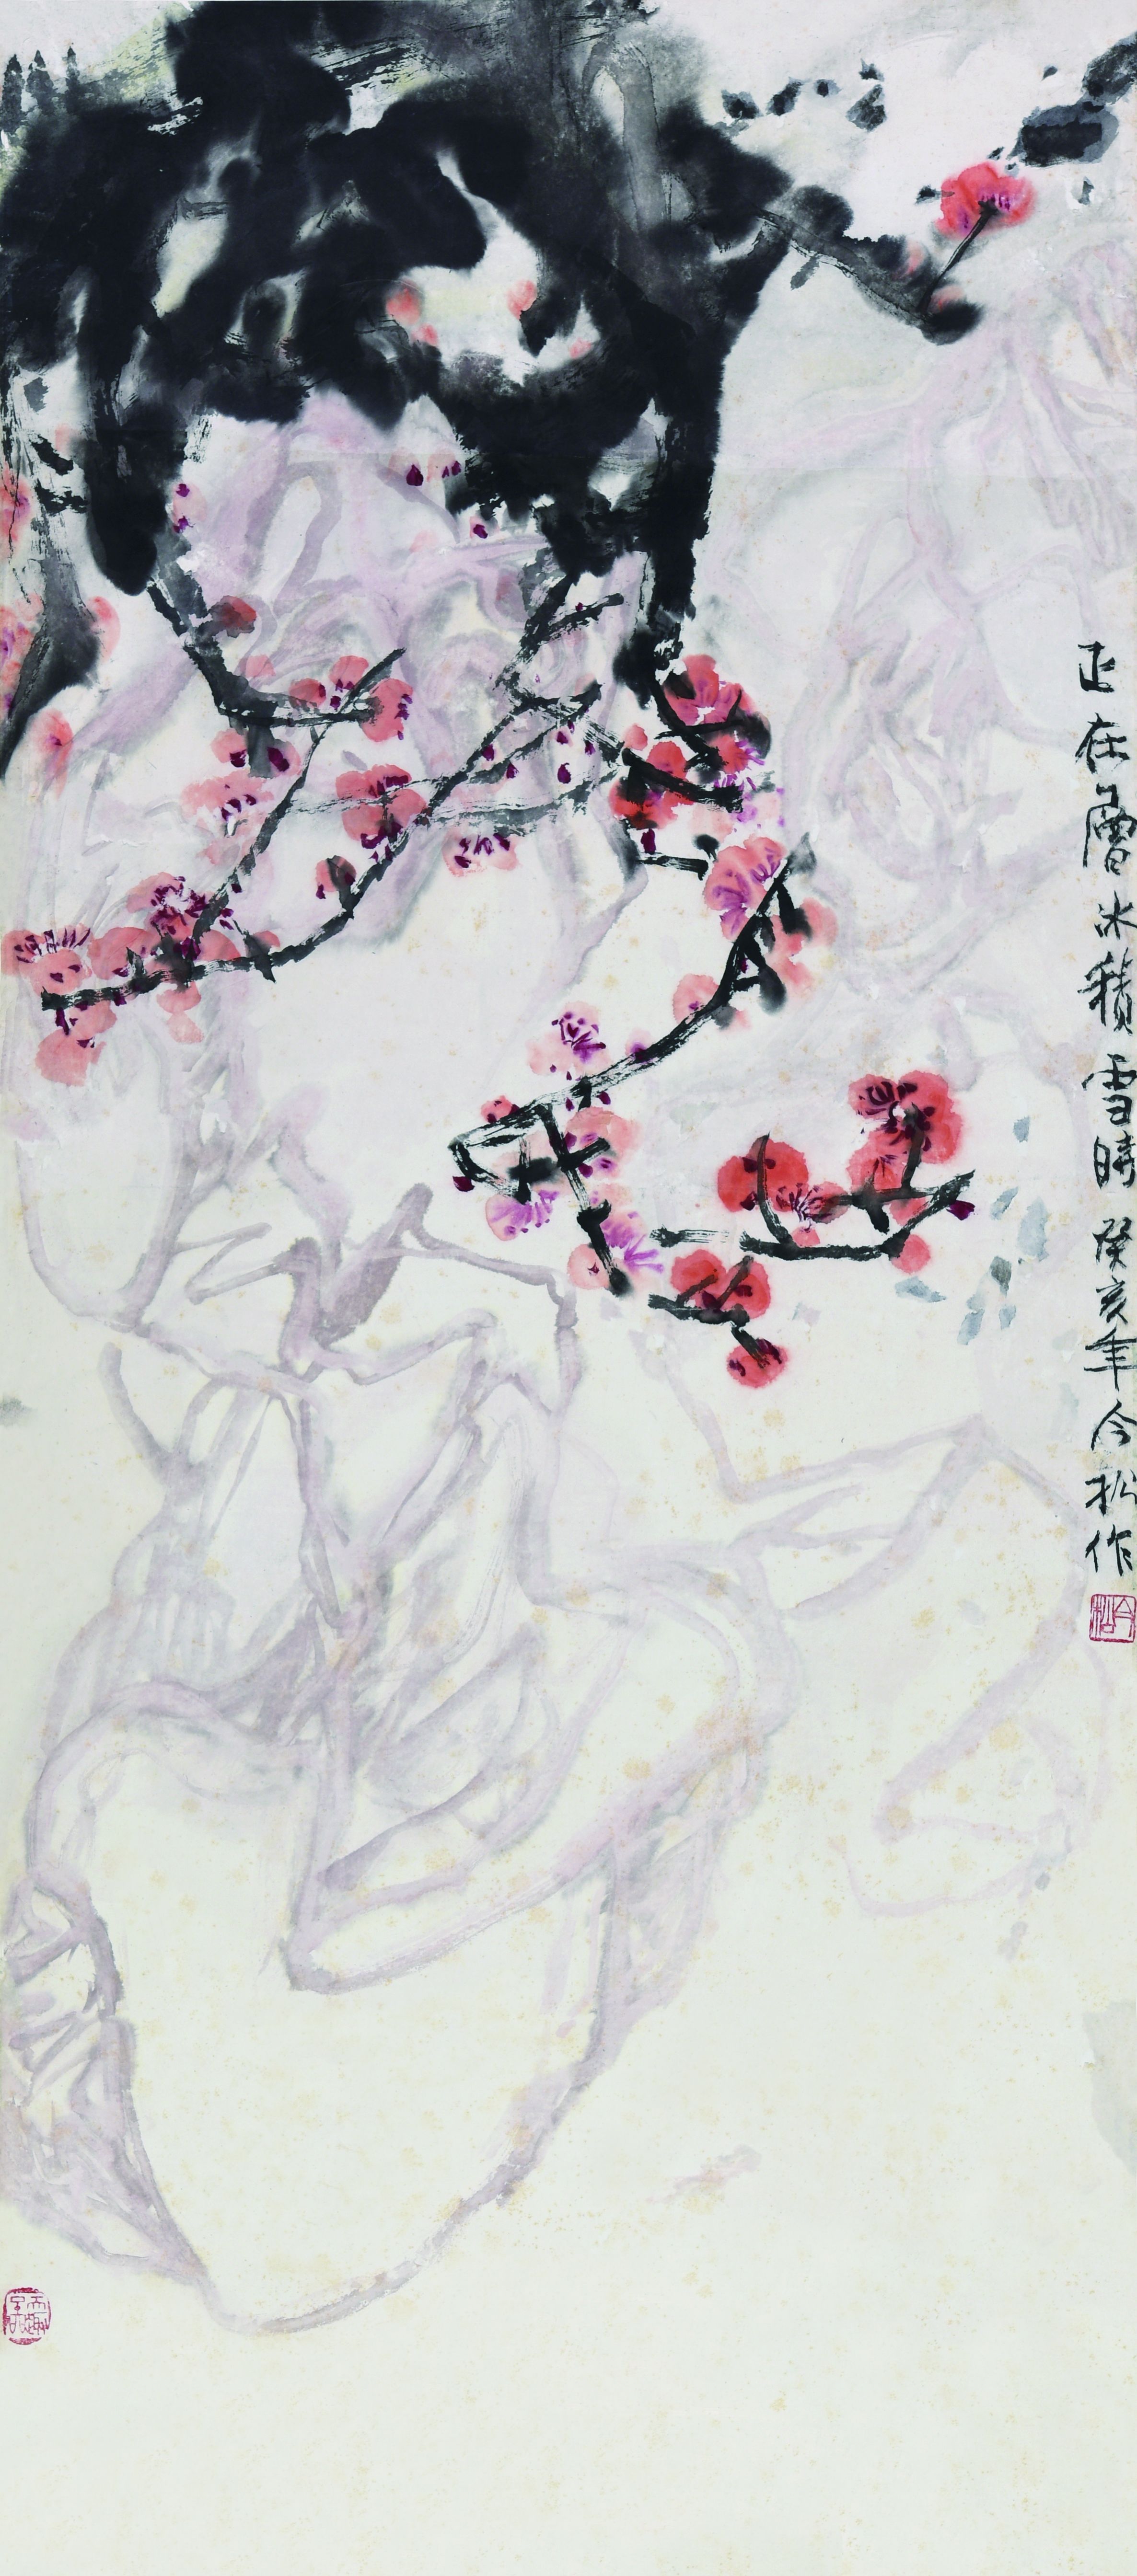 正在層冰積雪時 癸亥年 今松作
今松